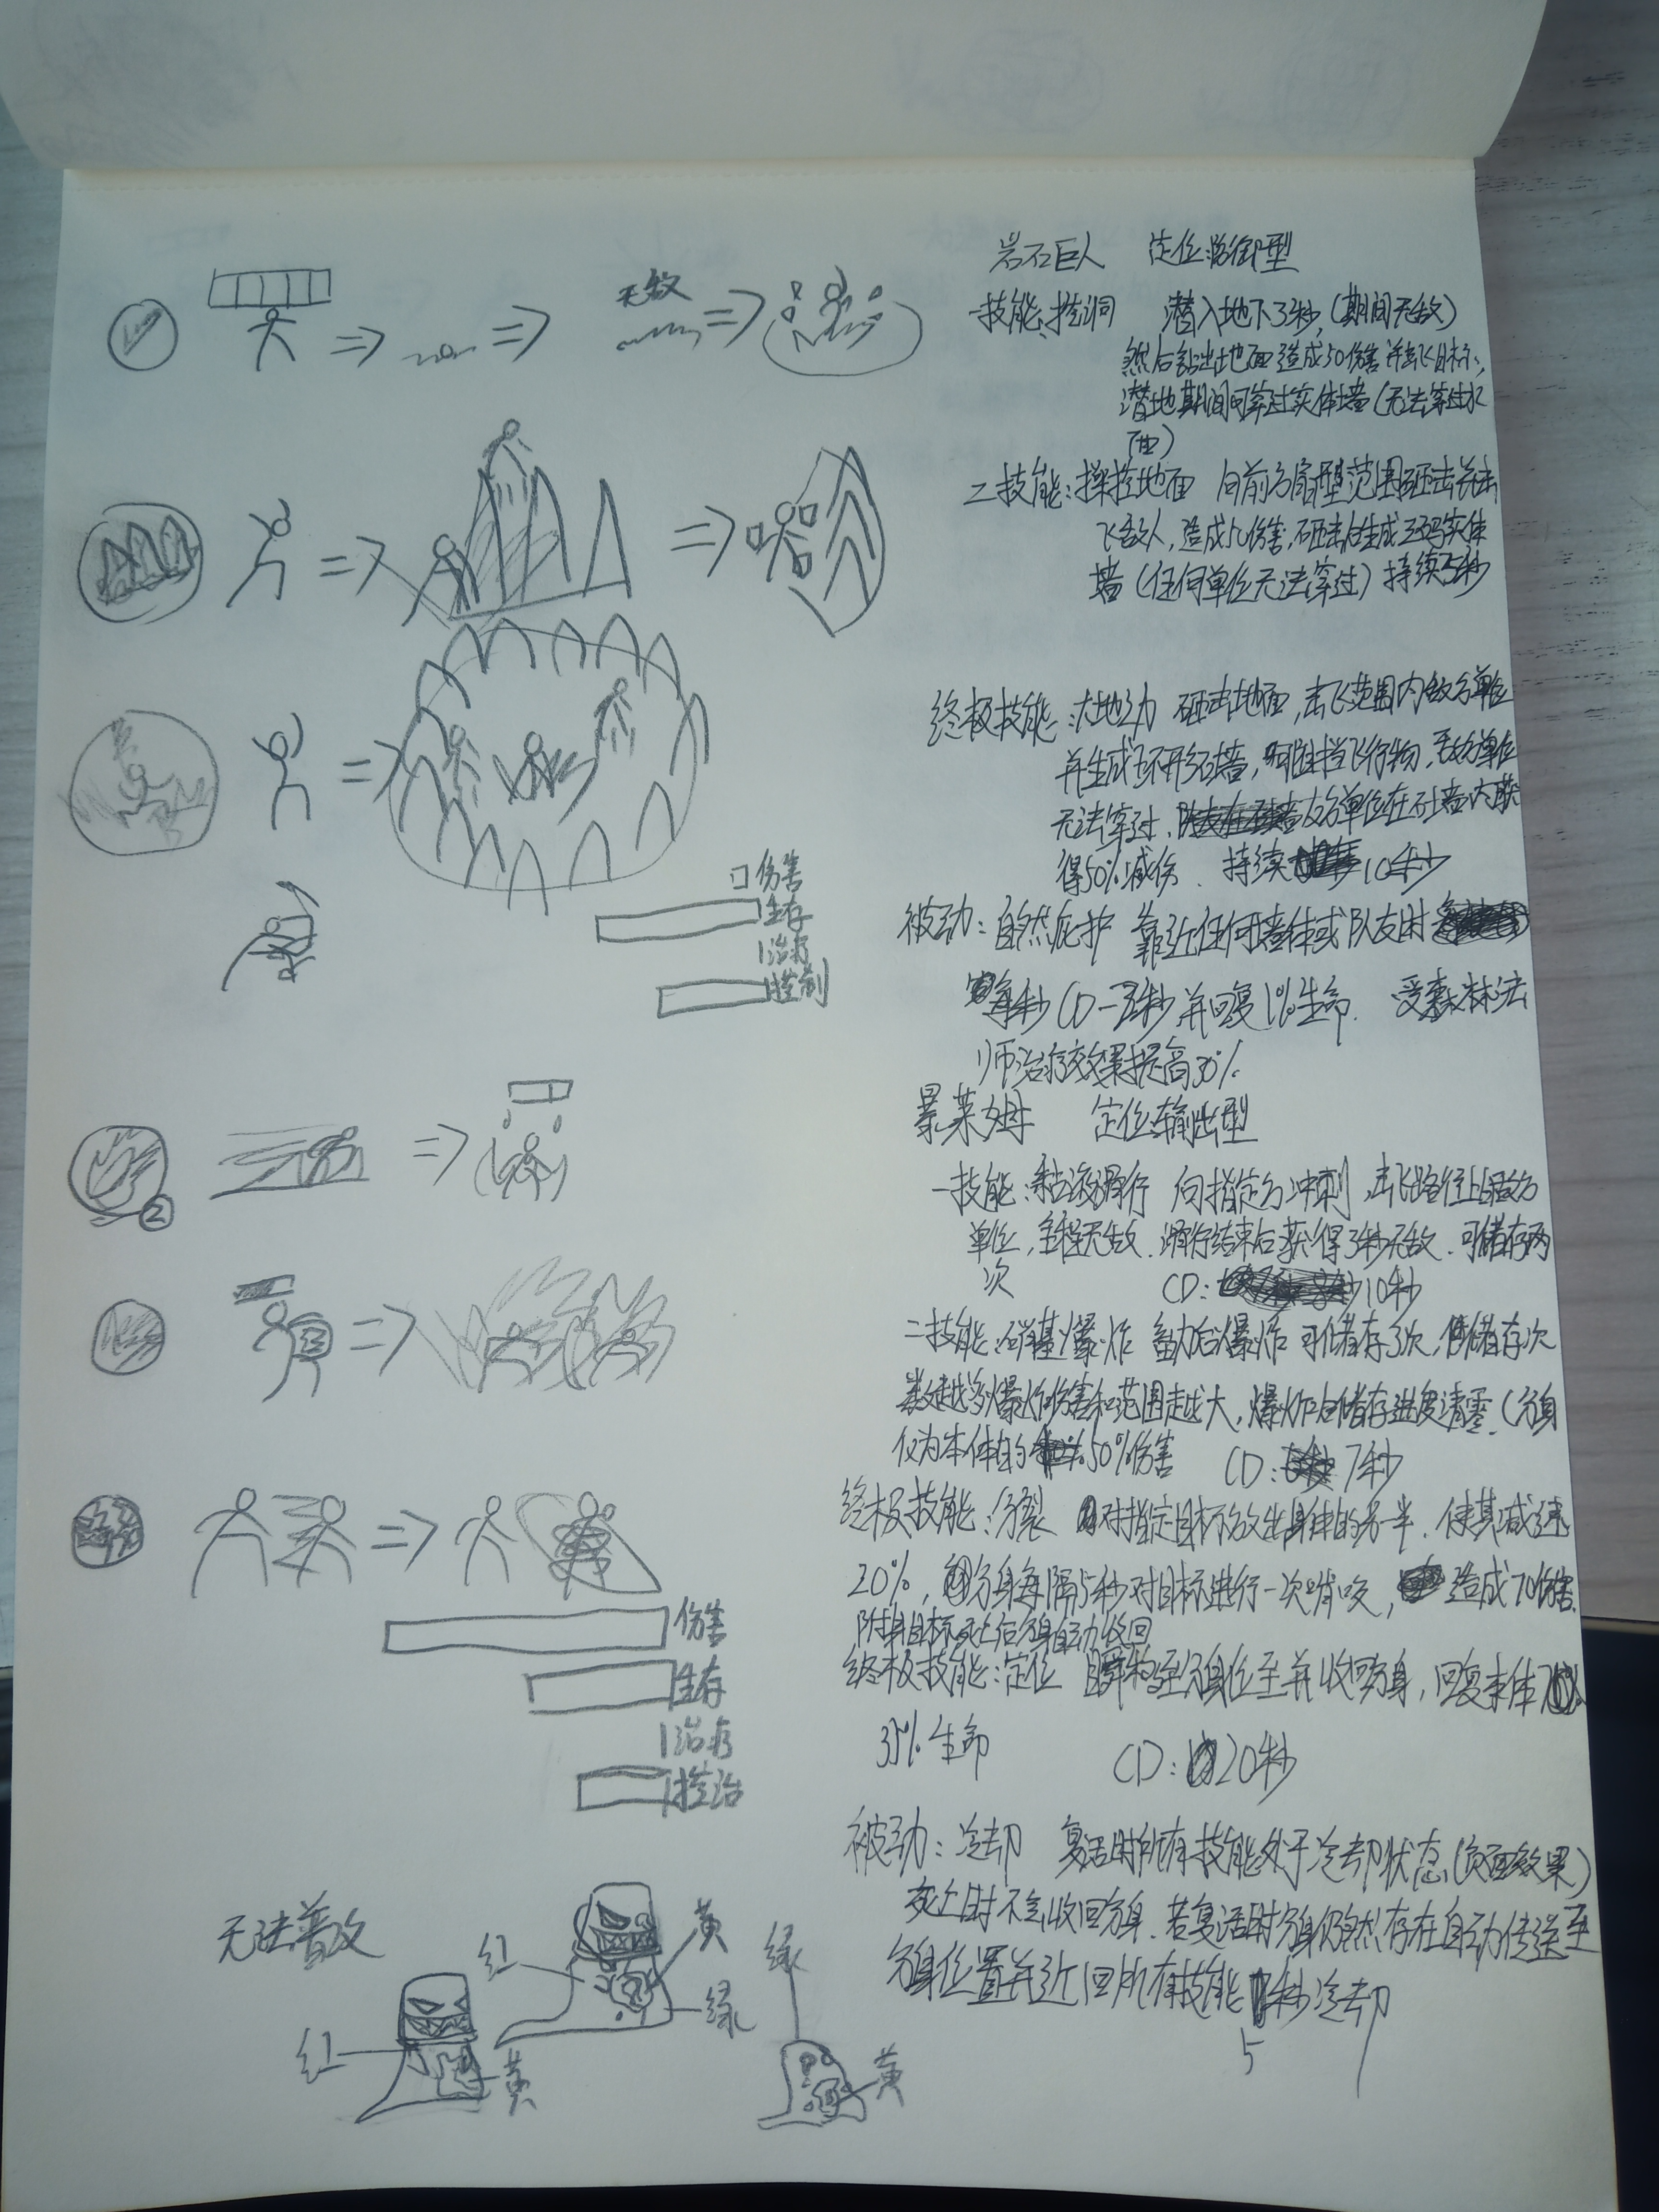 岩石巨人 定位:防御型
一技能:挖洞 潜入地下3秒,(期间无敌)
然后钻出地面造成50伤害并击飞目标,
潜地期间可穿过实体墙(无法穿过水
面)
二技能:操控地面 向前方扇型范围砸击并击
飞敌人,造成50伤害,砸击后生成三码实体
墙(任何单位无法穿过)持续5秒
终极技能:大地动 砸击地面,击飞范围内敌方单位
并生成环形石墙,可阻挡飞行物,敌方单位
无法穿过,友方单位在石墙内获
得50%减伤. 持续10秒
被动:自然庇护 靠近任何墙体或队友时
每秒CD-1秒并回复1%生命. 受森林法
师治疗效果提高30%
暴莱姆 定位:输出型
一技能:黏液滑行 向指定方冲刺,击飞路径上敌方
单位,全程无敌.滑行结束后获得3秒无敌.可储存两
次 CD:10秒
二技能:硝基爆炸 蓄力后爆炸 可储存3次,储存次
数越多爆炸伤害和范围越大,爆炸后储存进度清零.(分身
仅为本体的50%伤害 CD:7秒
终极技能:分裂 对指定目标放出身体的另一半.使其减速
20%,分身每隔5秒对目标进行一次啃咬,造成70伤害.
附身目标死亡后分身自动收回
终极技能:定位 瞬移至分身位至并收回分身,回复本体
35%生命 CD:20秒
被动:冷却 复活时所有技能处于冷却状态(负面效果)
死亡时不会收回分身.若复活时分身仍然存在自动传送至
分身位置并返回所有技能秒冷却
5
无敌
伤害
生存
治疗
控制
2
伤害
生存
治疗
控治
无法普攻
红
黄
绿
红
黄
绿
黄